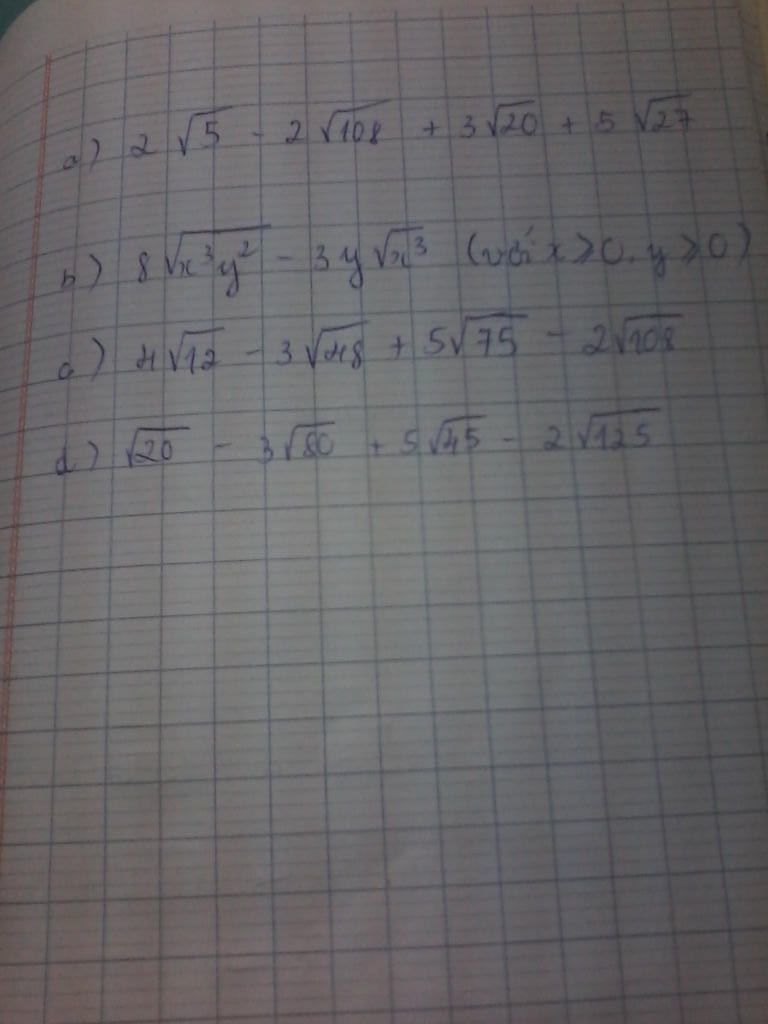 a) 2√5 - 2√108 + 3√20 + 5√27
b) 8√x³y² - 3y√x³ (với x ⩾ 0, y ⩾ 0)
c) 4√12 - 3√48 + 5√75 - 2√108
d) √20 - 3√80 + 5√45 - 2√125